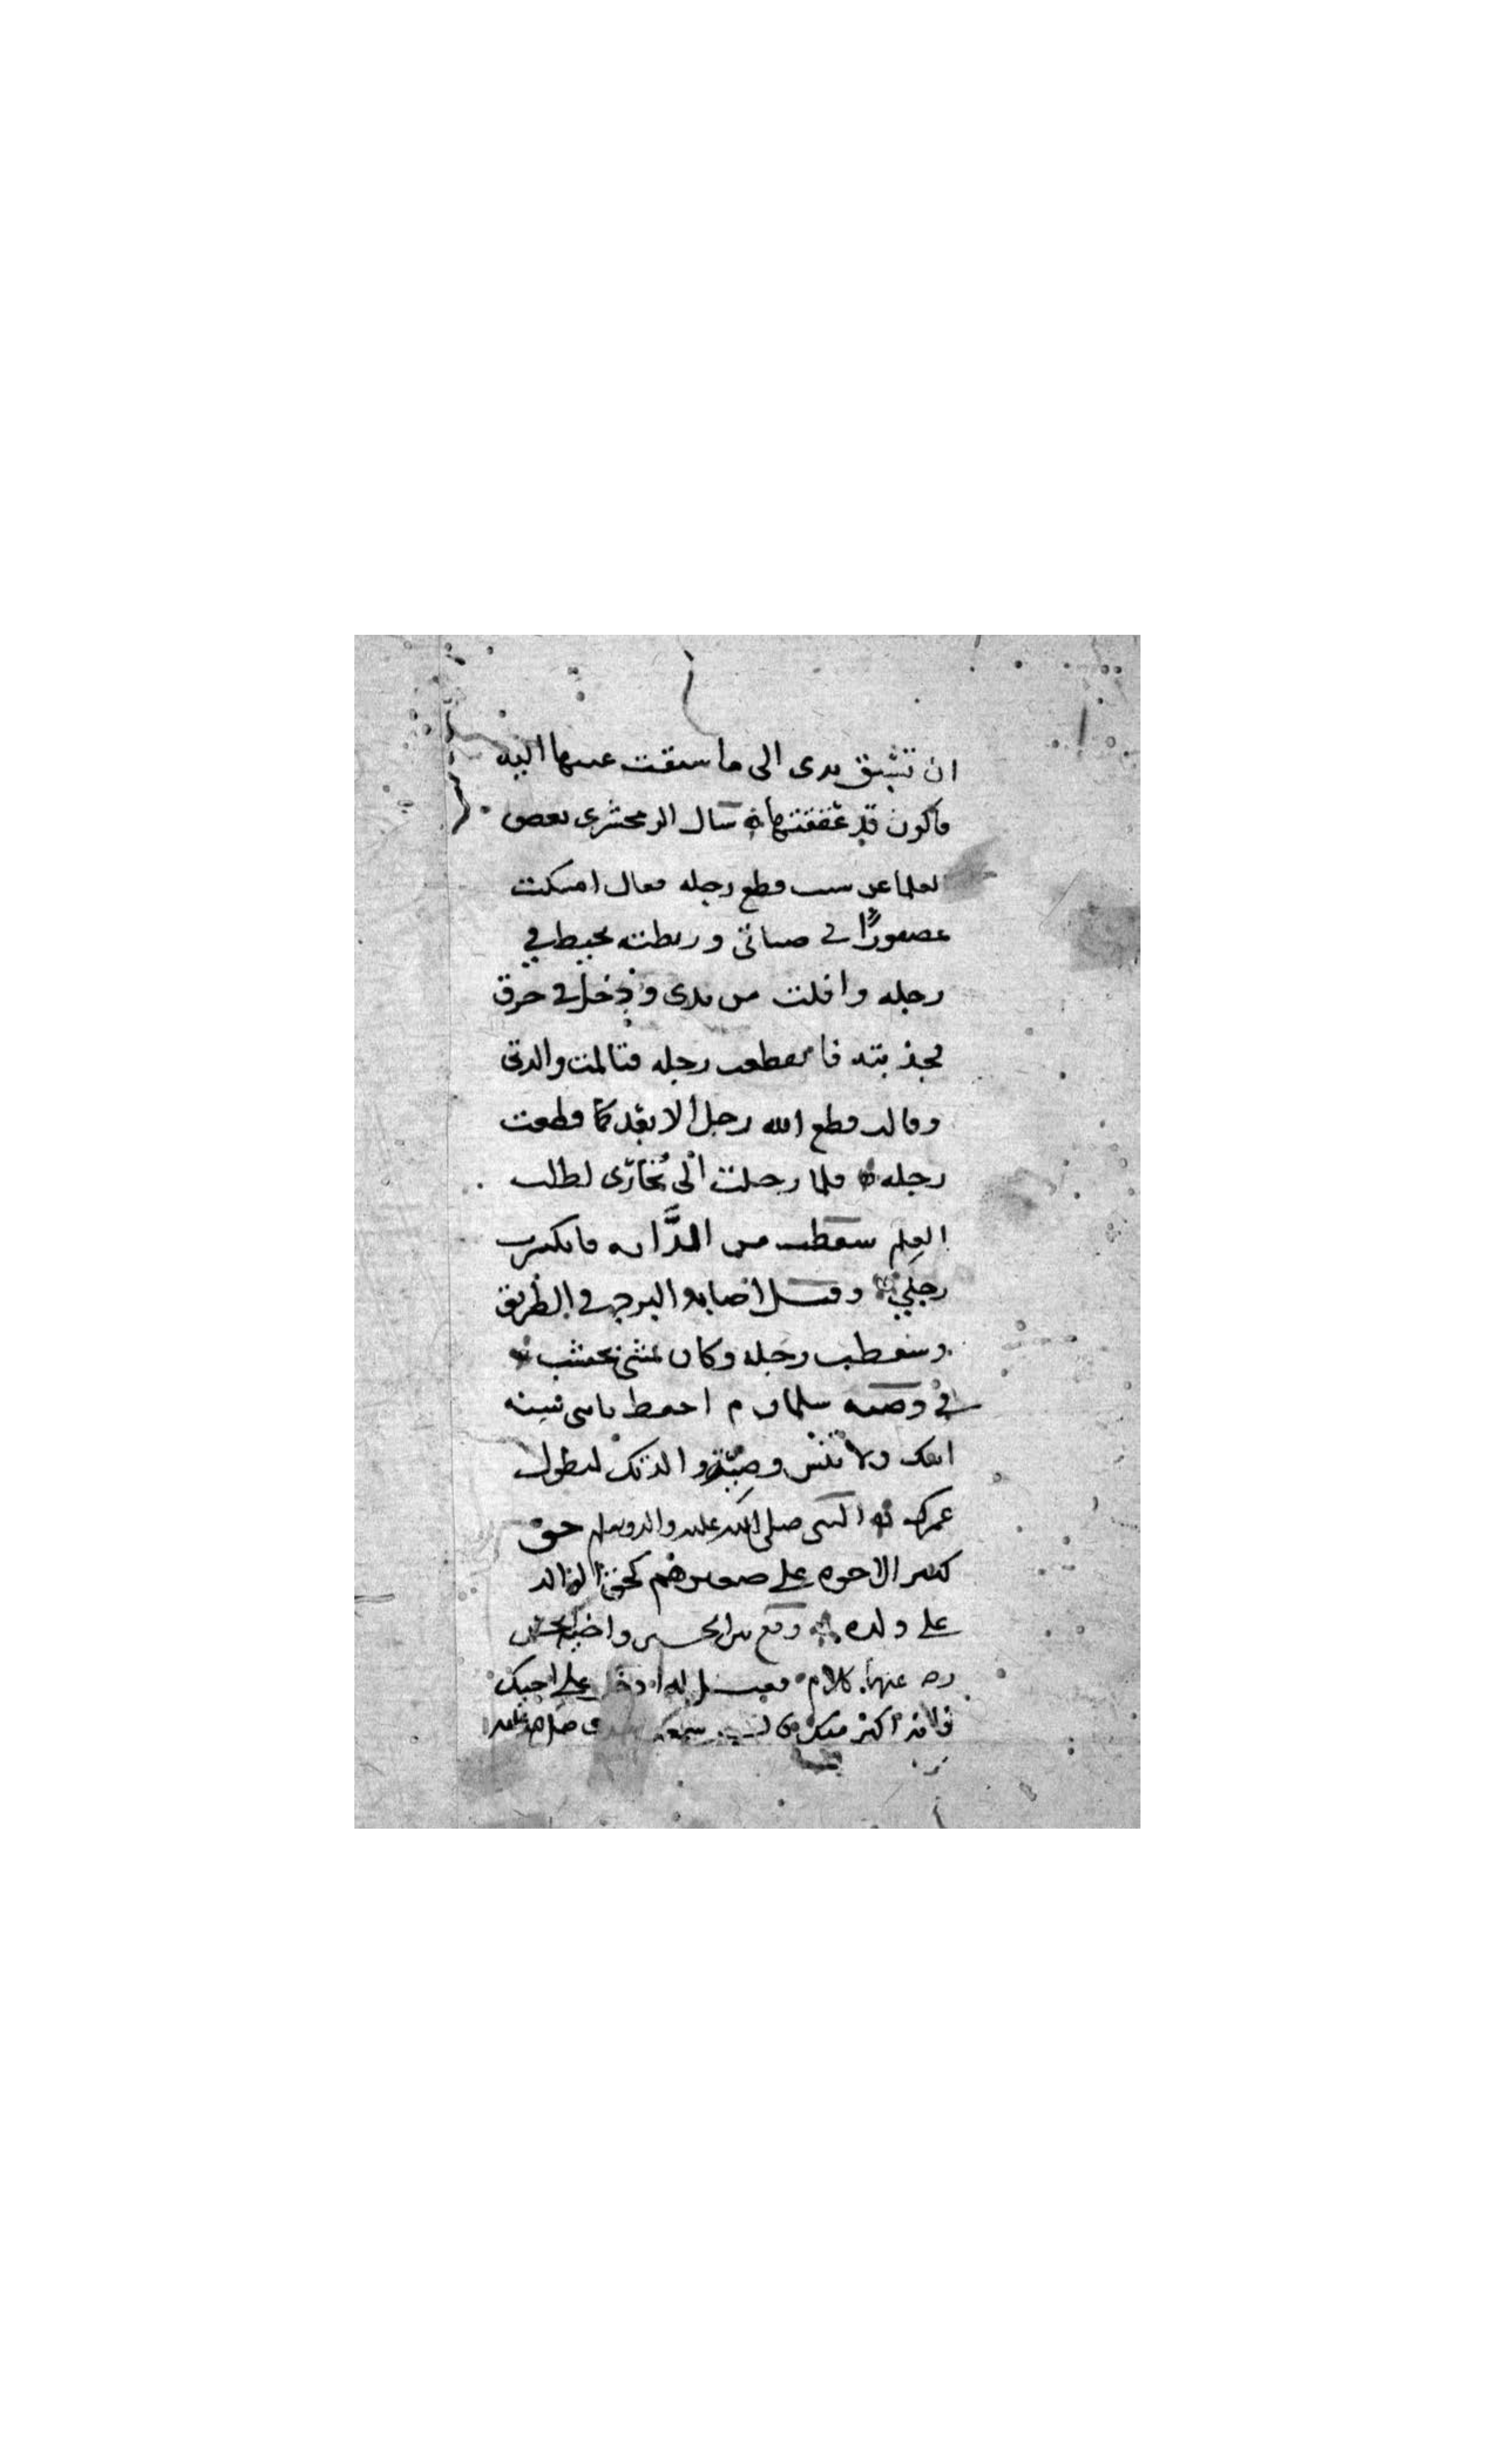 ان تسبق يدى الى ما سبقت عينها اليه
فاكون قد عققتها سال الزمخشرى بعض
العلما عن سبب قطع رجله فقال امسكت
عصفورًا في صباتى وربطته بخيط في
رجله وافلت من يدى ودخل في خرق
فجذبته فانقطعت رجله فتالمت والدتى
وقالت قطع الله رجل الابعد كما قطعت
رجله فلما رحلت الى بُخارَى لطلب
العلم سقطت من الدَّابة فانكسرت
رجلي وقيل اصابه البرد في الطريق
وسقطت رجله وكان يمشى بخشب
في وصية سليمان م احفظ يا بنى سنة
ابيك ولا تنس وصيّة والدتك ليطول
عمرك النبى صلى الله عليه واله وسلم حق
كبير الاخوة على صغيرهم كحق الوالد
على ولده وقع بين الحسين واخيه الحسن
رضه عنهما كلام فقيل له ادخل على اخيك
فانه اكبر منك سمعت جدى صلى الله عليه